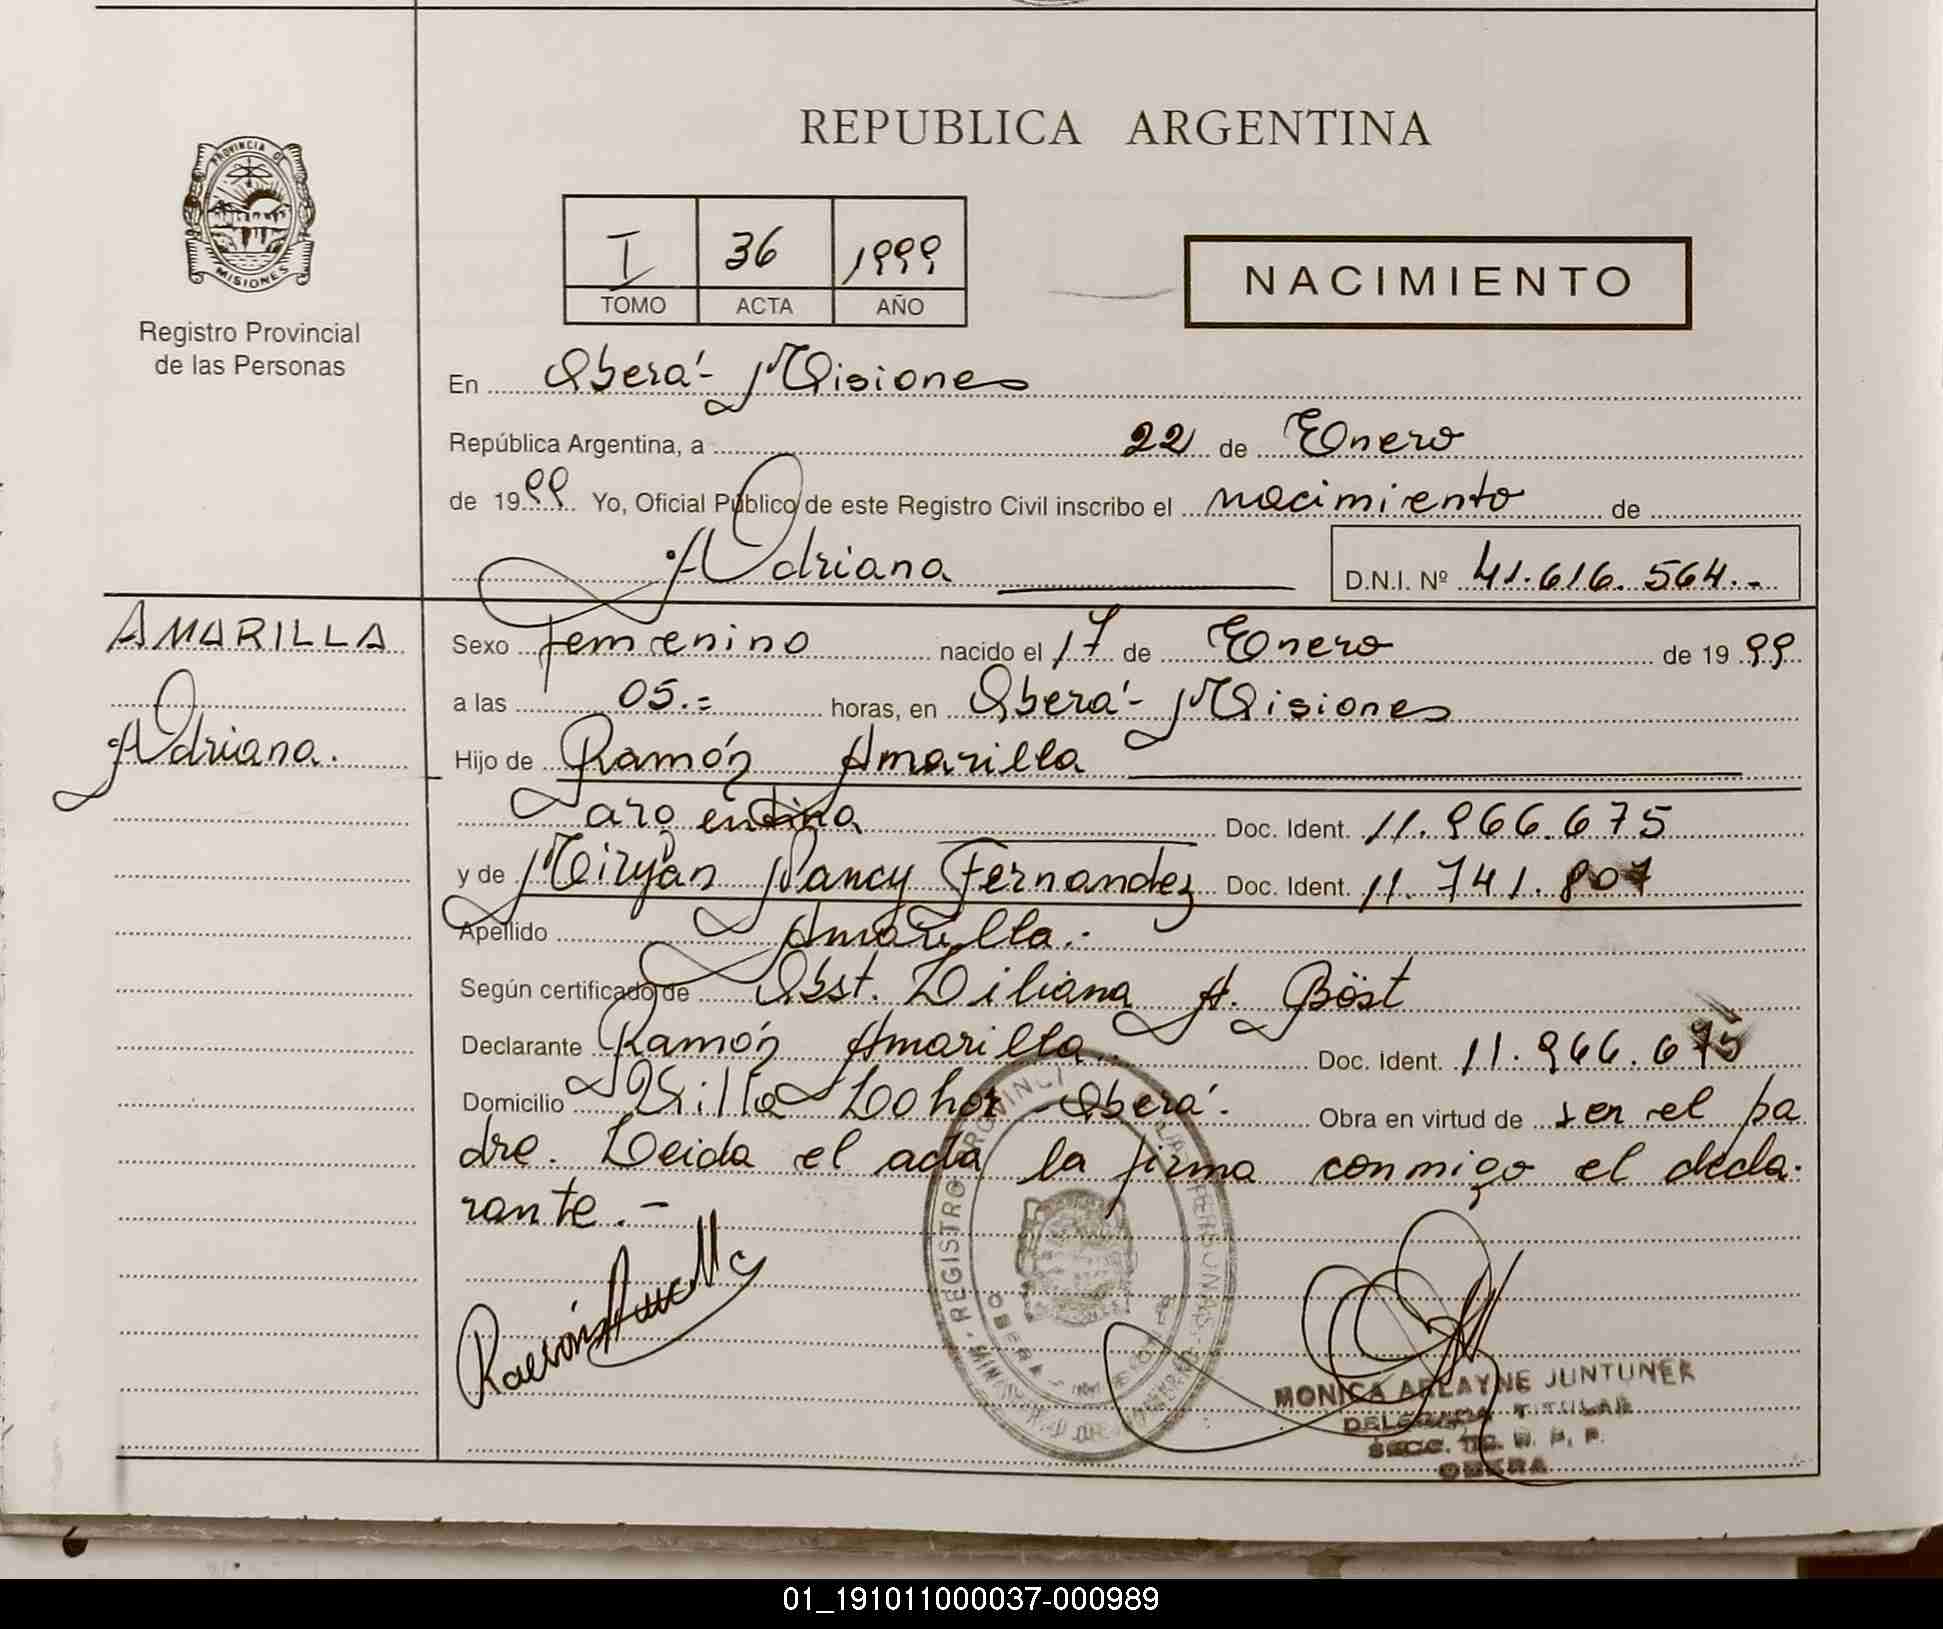 REPUBLICA ARGENTINA
PROVINCIA DE
MISIONES
Registro Provincial
de las Personas
I 36 1999
TOMO ACTA AÑO
NACIMIENTO
En Oberá - Misiones
República Argentina, a 22 de Enero
de 1999 Yo, Oficial Público de este Registro Civil inscribo el nacimiento de
Adriana D.N.I. Nº 41.616.564.-
AMARILLA
Adriana.
Sexo femenino nacido el 17 de Enero de 1999
a las 05.= horas, en Oberá - Misiones
Hijo de Ramón Amarilla
argentina Doc. Ident. 11.966.675
y de Miryan Nancy Fernandez Doc. Ident. 11.741.807
Apellido Amarilla.-
Según certificado de Obst. Liliana A. Böst
Declarante Ramón Amarilla. Doc. Ident. 11.966.675
Domicilio Villa Oberá. Obra en virtud de ser el pa
dre. Leida el acta la firma conmigo el decla.
rante.-
Ramón Amarilla
REGISTRO PROVINCI PERSONAS
OBERA
MONICA ARLAYNE JUNTUNER
DELEGADA TITULAR
OBERA
01_191011000037-000989